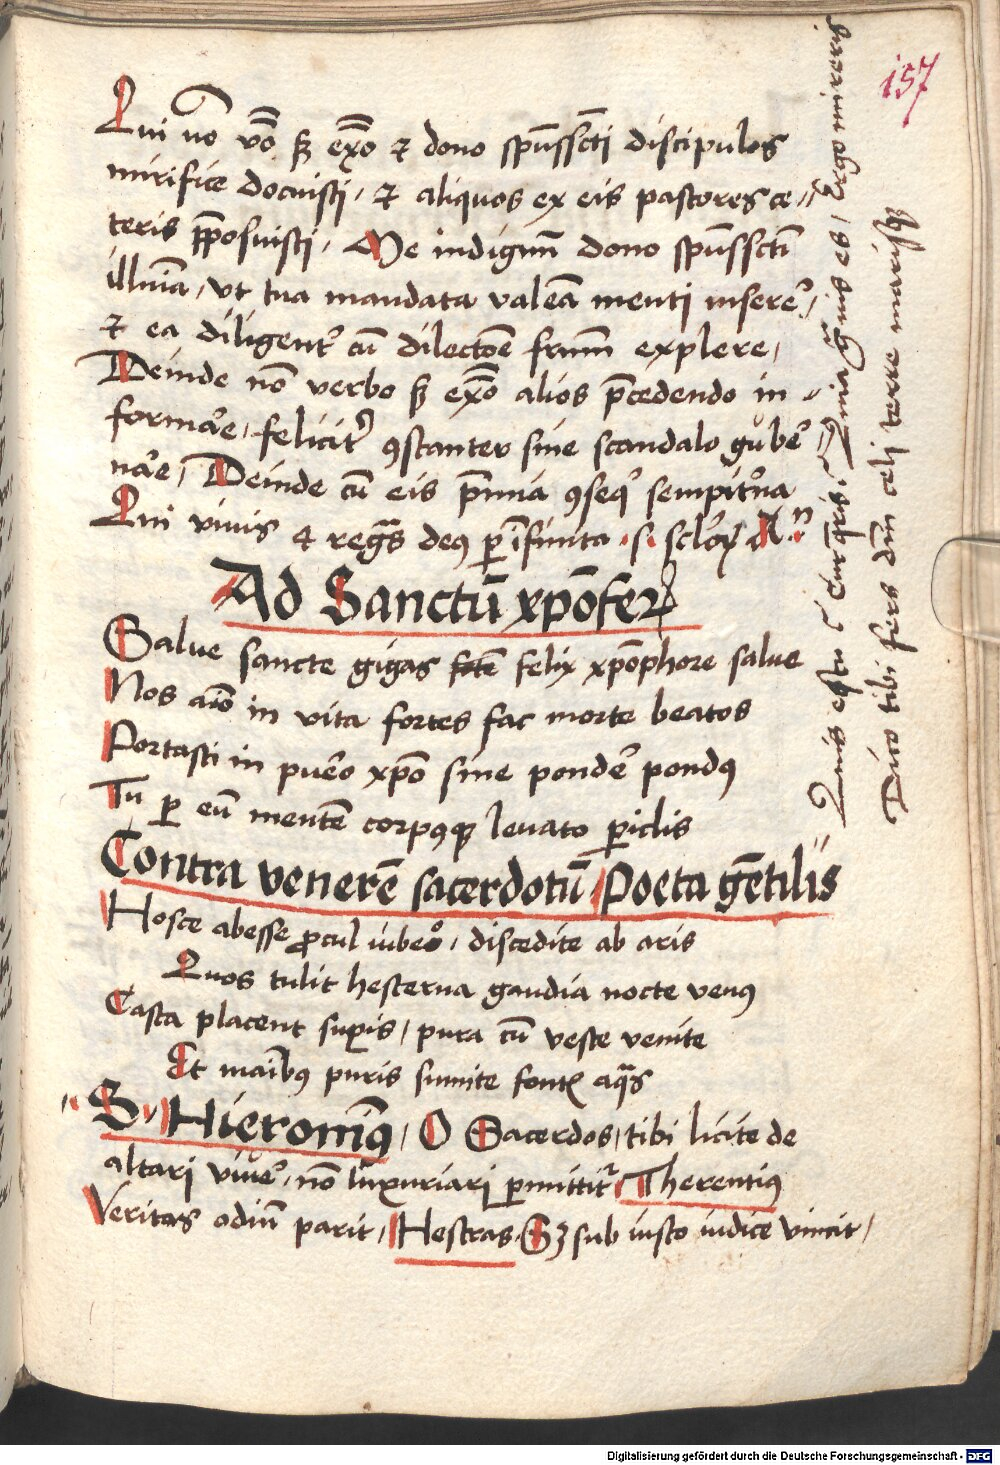 157
Qui nō vō sȝ exō ⁊ dono spūssctī discipulos
mirifice docuisti, ⁊ aliquos ex eis pastores ce„
teris p̄posuisti, Me indignū dono spūssctī
illmīa, vt tua mandata valeā menti inserer̉,
⁊ ea diligentr̉ cū dilectōe frm̄ explere,
Deinde nō verbo sȝ exō alios p̄cedendo in„
formar̉e, felicitr̉ ꝯstanter sine scandalo guber̉
nar̉e, Deinde cū eis p̄mia ꝯseq̉ sempitr̉na
Qui viuis ⁊ regn̄as deꝰ ꝑ īfinita .s. sclōꝝ An
Ad Sanctū xp̄oferꝝ
Salue sancte gigas felix xp̄ophore salue
Nos aīo in vita fortes fac morte beatos
Portasti in puer̉o xp̄o sine ponder̉ pondꝰ
Tu ꝑ eū mentē corpꝰqꝫ leuato ꝑiclis
Contra venerē sacerdotū Poeta gētilis
Hosce abesse ꝓcul iubeo, discedite ab aris
Quos tulit hesterna gaudia nocte venꝰ
Casta placent suꝑis, pura cū veste venite
Et maibꝰ puris sumite fontꝭ aqͣs
S. Hieronimꝰ, O Sacerdos, tibi licite de
altari viuer̉, nō luxuriari ꝑmittitr̉ Therentiꝰ
Veritas odiū parit, Hestras. Sȝ sub iusto iudice vincit,
Quis es tu Cur Quia gnus es, Ergo mireris
Duo tibi fers dūm celi terre marisqꝫ
Digitalisierung gefördert durch die Deutsche Forschungsgemeinschaft - DFG